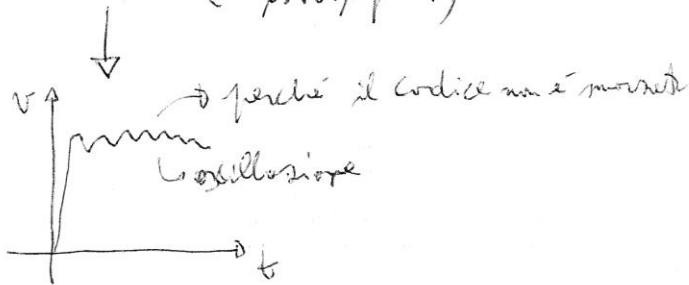 v
→ perché il codice non è
↳ oscillazione
t